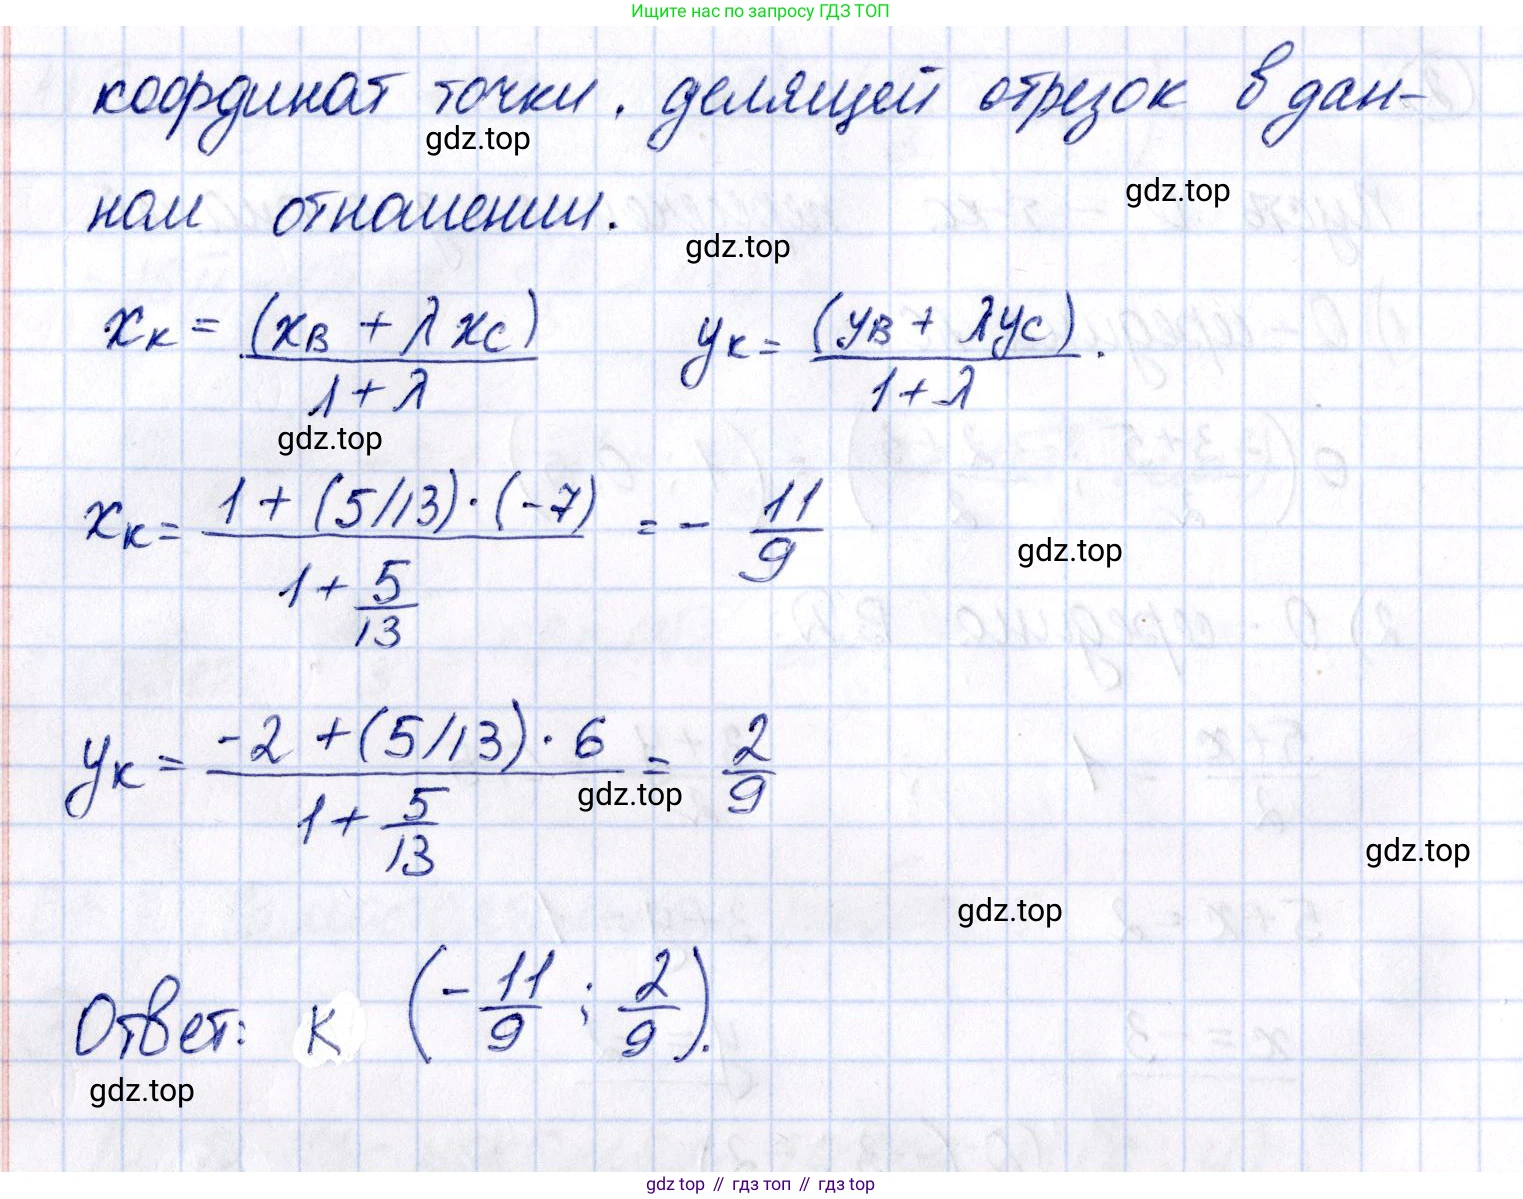 Ищите нас по запросу ГДЗ ТОП
координат точки, делящей отрезок в дан-
gdz.top
ном отношении.
gdz.top
gdz.top
xк = (xB + λxC) / 1+λ   yк = (yB + λyC) / 1+λ .
gdz.top
xк = 1+(5/13)·(-7) / 1+5/13 = - 11/9
gdz.top
yк = -2+(5/13)·6 / 1+5/13 = 2/9
gdz.top
gdz.top
gdz.top
Ответ: K (-11/9 ; 2/9).
gdz.top
gdz top // гдз топ // gdz top